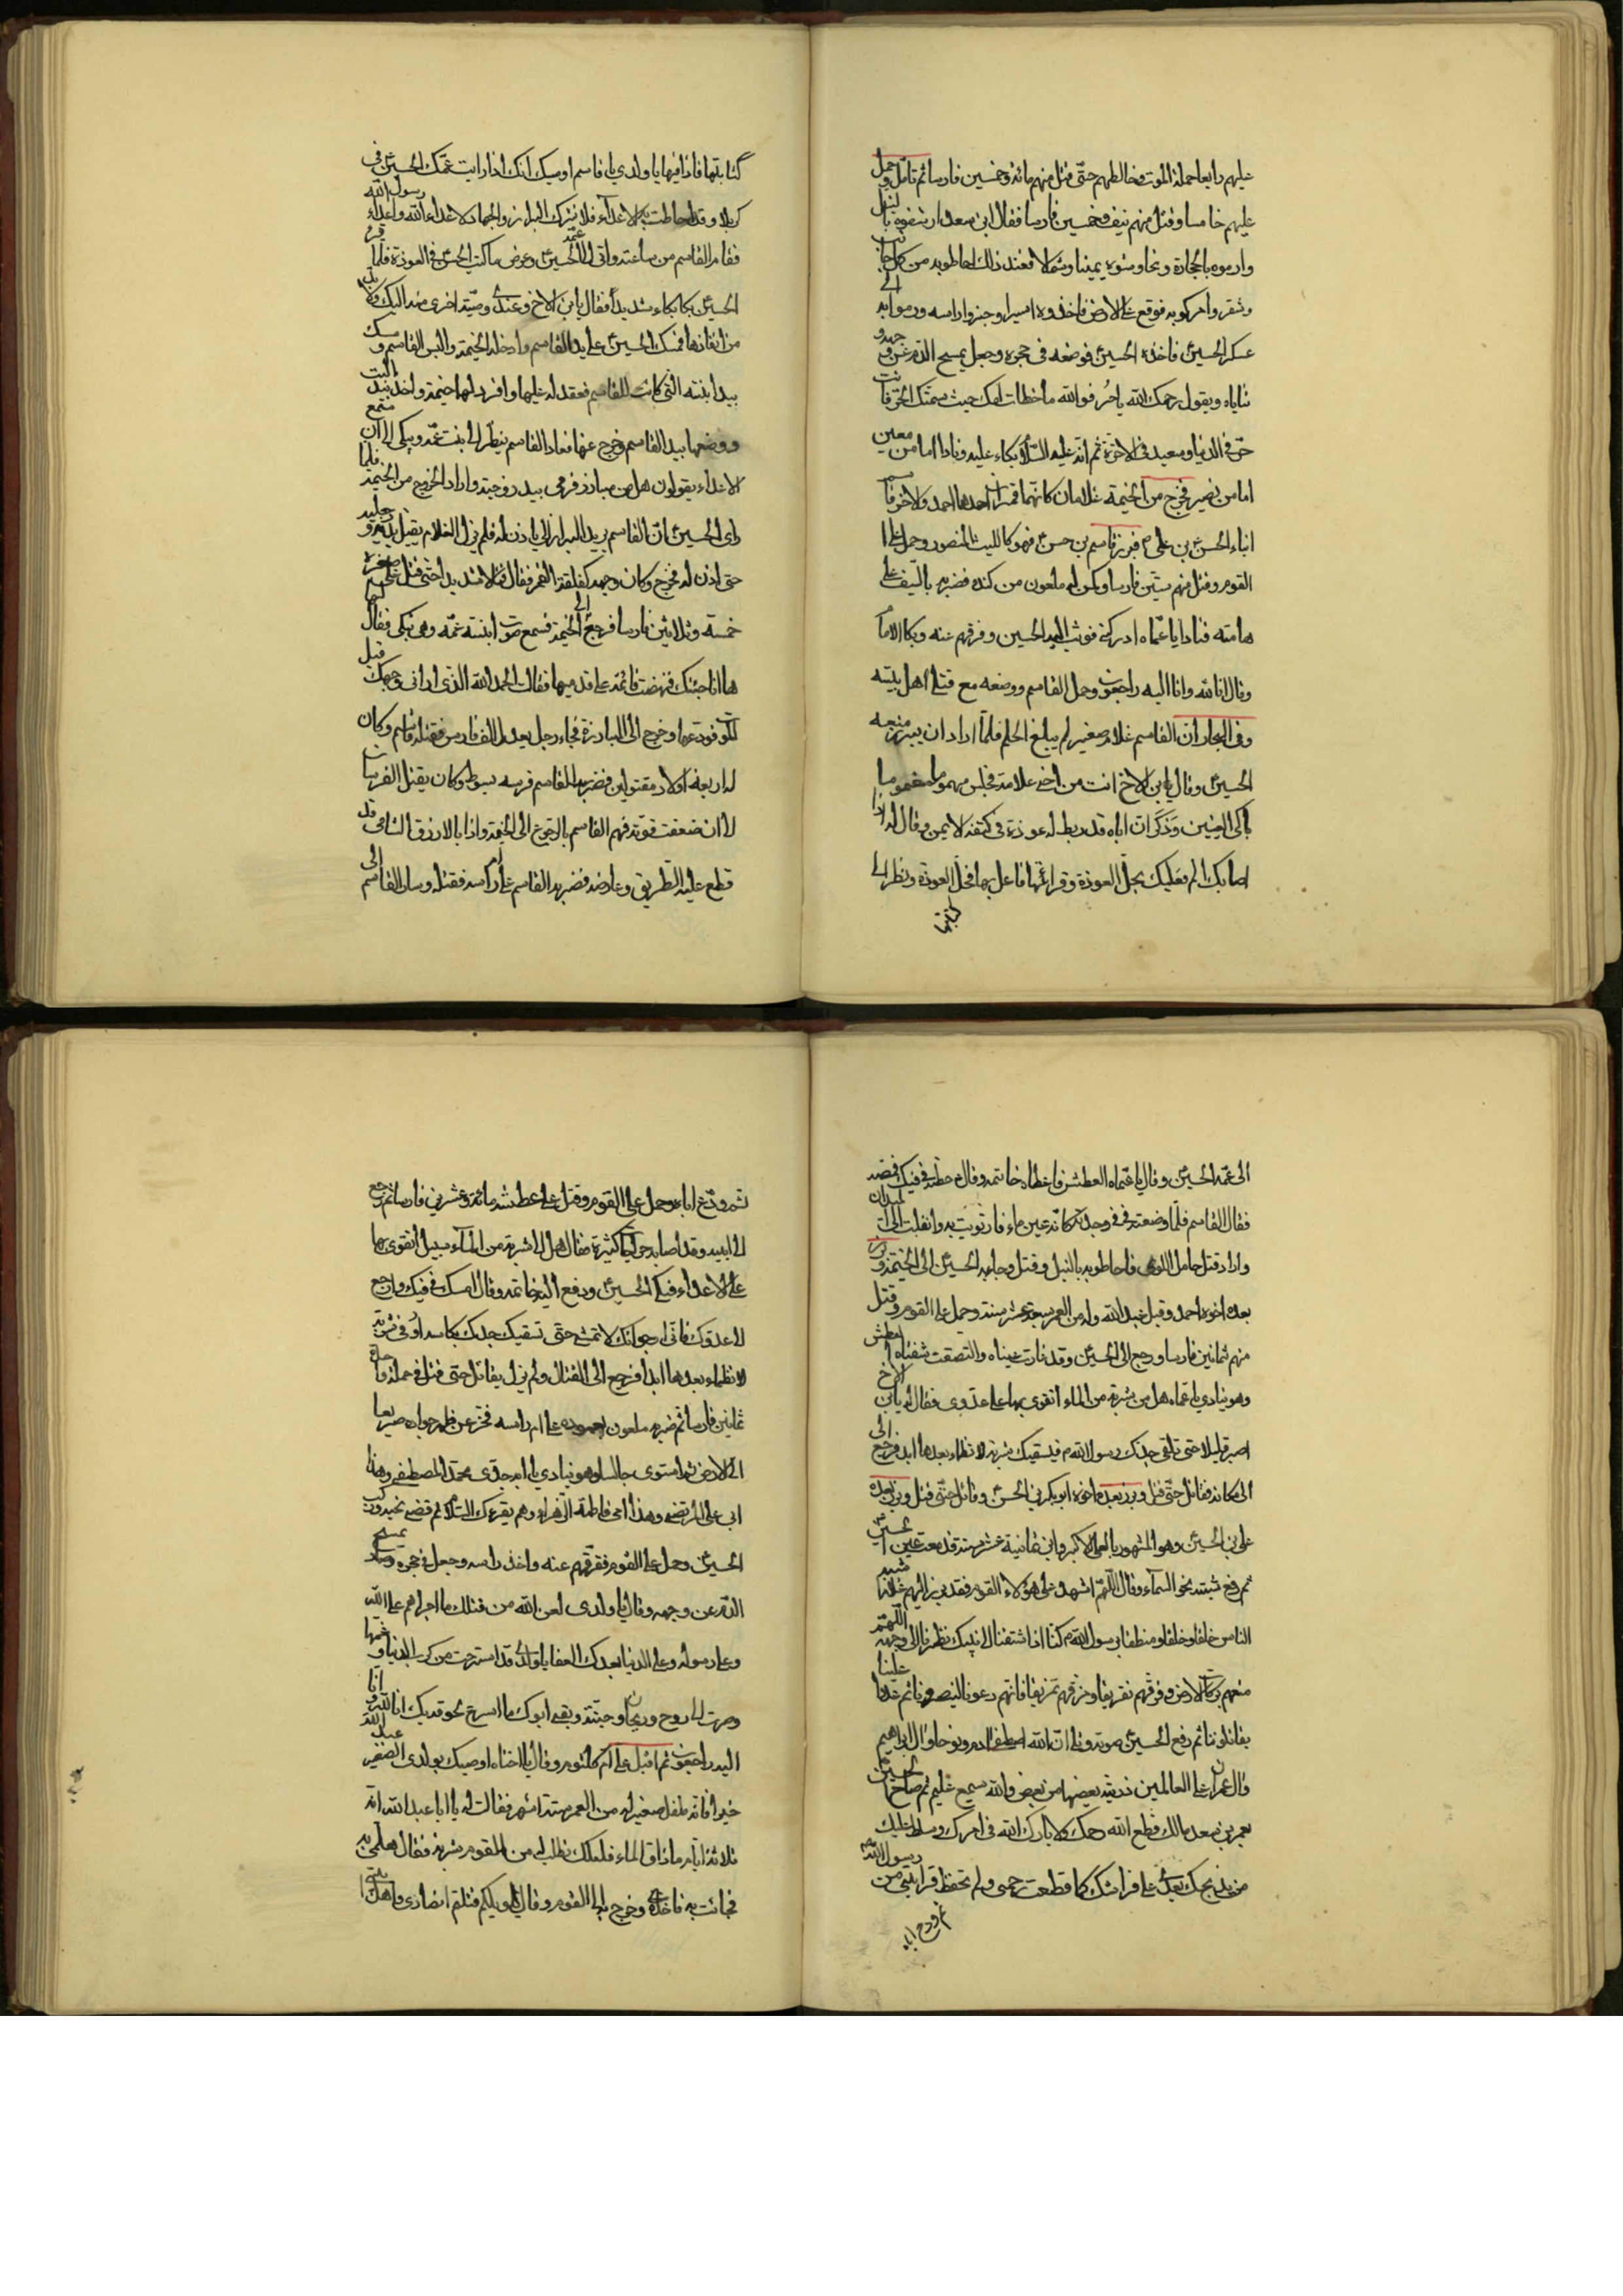 عليهم رابعا حملة الموت فخالطهم حتى قتل منهم مائة وخمسين فارسا ثم تأمل وحمل
عليهم خامسا وقتل منهم نيف وخمسين فارسا فقال ابن سعد ارشقوه بالنبل
وارموه بالحجارة وشمالا فعند ذلك احاطوا به من كل جانب
فوقع على الارض فاخذوه اسيرا وجزوا راسه ورموا به الى
عسكر الحسين فاخذه الحسين فوضعه فى حجره وجعل يمسح الدم عن وجهه و
ثناياه ويقول رحمك الله يا حر فوالله ما اخطات امك حيث سمتك الحر فانت
حر فى الدنيا وسعيد فى الاخرة ثم انه عليه السلام بكاء عليه ونادا اما من معين
اما من نصير فخرج من الخيمة غلامان كانهما قمران احدهما احمد والاخر قاسم
ابناء الحسن بن على فبرز قاسم بن حسن فهو كالليث المنصور وحمل على
القوم وقتل منهم ستين فارسا وكمن له ملعون من كنده فضربه بالسيف على
هامته فنادا يا عماه ادركنى فوثب اليه الحسين وفرقهم عنه وبكا الامام
وقال انا لله وانا اليه راجعون وحمل القاسم ووضعه مع قتلى اهل بيته
وفى البحار ان القاسم غلام صغير لم يبلغ الحلم فلما اراد ان يبرز منعه
الحسين وقال يا بن الاخ انت من اخى علامة فجلس مهموما مغموما
باكى العينين وذكر ان اباه قد ربط له عوذة فى كتفه الايمن وقال له اذا
اصابك الم فعليك بحل العوذة وقرائتها فاعمل بها فحل العوذة ونظر الى
كتابتها
كتابتها فاذا فيها يا ولدى يا قاسم اوصيك انك اذا رايت عمك الحسين فى
كربلا وقد احاطت به الاعداء فلا تترك البراز والجهاد لاعداء الله واعداء رسول الله
فقام القاسم من ساعته واتى الى عمه الحسين وعرض ما كتب الحسن فى العوذة فلما قرء
الحسين بكا بكاء شديدا فقال يا بن الاخ وعندى وصية اخرى منه اليك ولا بد
من انفاذها فمسك الحسين على يد القاسم وادخله الخيمة والبس القاسم ومسك
بيد ابنته التى كانت للقاسم فعقد له عليها وافرد لها خيمة واخذ بيد البنت
ووضعها بيد القاسم وخرج عنها فعاد القاسم ينظر الى ابنت عمه ويبكى الى ان سمع
الاعداء يقولون هل من مبارز فرمى بيد زوجته واراد الخروج من الخيمة فلما
راى الحسين ان القاسم يريد البراز لم ياذن له فلم يزل الغلام يقبل يديه ورجليه
حتى اذن له فخرج وكان وجهه كفلقة القمر فقاتل قتالا شديدا حتى قتل على صغره
خمسة وثلاثين فارسا فرجع الى الخيمة فسمع صوت ابنته عمه وهى تبكى فقال
ها انا جئتك فنهضت قائمة على قدميها فقالت الحمد لله الذى ارانى وجهك قبل
الموت فودعها وخرج الى المبارزة فجاء رجل يعد بالف فارس فقتله قاسم وكان
له اربعة اولاد مقتولين فضرب القاسم فرسه بسوط وكان يقتل الفرسان
الى ان ضعفت قوته فهم القاسم بالرجوع الى الخيمة واذا بالازرق الشامى قد
قطع عليه الطريق وعارضه فضربه القاسم على ام راسه فقتله وسار القاسم الى
الى عمه الحسين وقال يا عماه العطش فاعطاه خاتمه وقال حطه فى فيك فمصه
فقال القاسم فلما وضعته فى فمى وجدته كانه عين ماء فارتويت به وانقلبت الى الميدان
واراد قتل حامل اللوى فاحاطوا به بالنبل وقتل وجابه الحسين الى الخيمة وبرز
بعده اخوه احمد وقيل عبد الله وله من العمر سبعة عشر سنة وحمل على القوم وقتل
منهم ثمانين فارسا ورجع الى الحسين وقد غارت عيناه والتصقت شفتاه العطش
وهو ينادى يا عماه هل من شربة من الماء اتقوى بها على عدوى فقال له يا بن الاخ
اصبر قليلا حتى تلقى جدك رسول الله فيسقيك شربة لا تظماء بعدها ابدا فرجع الى
الى مكانه فقاتل حتى قتل وبرز بعده اخوه ابو بكر بن الحسن وقاتل حتى قتل وبرز بعده
على بن الحسين وهو المشهور بالعلى الاكبر وابن ثمانية عشر سنة فدمعت عين الحسين
ثم رفع شيبته نحو السماء وقال اللهم اشهد على هؤلاء القوم فقد برز اليهم غلاما شبيه
الناس خلقا وخلقا ومنطقا برسول الله كنا اذا اشتقنا الى نبيك نظرنا الى وجهه اللهم
منعهم بركات الارض وفرقهم تفريقا ومزقهم تمزيقا فانهم دعونا لينصرونا ثم عدوا علينا
يقاتلونا ثم رفع الحسين صوته وتلى ان الله اصطفى ادم ونوحا وال ابراهيم
وال عمران على العالمين ذرية بعضها من بعض والله سميع عليم ثم صاح الحسين
بعمر بن سعد مالك قطع الله رحمك ولا بارك الله فى امرك وسلط عليك
من يذبحك بعدى على فراشك كما قطعت رحمى ولم تحفظ قرابتى من رسول الله
ثم ودع اباه
ثم ودع اباه وحمل على القوم وقتل على عطشه مائة وعشرين فارسا ثم رجع
الى ابيه وقد اصابه جراحات كثيرة فقال هل الى شربة من الماء سبيل اتقوى بها
على الاعداء فبكى الحسين ودفع اليه خاتمه وقال امسك فى فيك وارجع
الى عدوك فانى ارجو انك لا تمسى حتى تسقيك جدك بكاسه اوفى شربة
لا تظماء بعدها ابدا فرجع الى القتال ولم يزل يقاتل حتى قتل فى حملة
ثمانين فارسا ثم ضربه ملعون بعموده على ام راسه فخر عن ظهر جواده صريعا
الى الارض ثم استوى جالسا وهو ينادى يا ابه جدى محمد المصطفى وهذا
ابى على المرتضى وهذا امى فاطمة الزهراء وهم يقرءك السلام ثم قضى نحبه وركب
الحسين وحمل على القوم ففرقهم عنه واخذ راسه وجعل فى حجره وصار يمسح
الدم عن وجهه وقال يا ولدى لعن الله من قتلك ما اجراهم على الله
وعلى رسوله وعلى الدنيا بعدك العفا يا ولدى قد استرحت من كرب الدنيا وغمها
وصرت الى روح وريحان وجنة وبقى ابوك ما اسرع لحوقه بك انا لله وانا
اليه راجعون ثم اقبل على ام كلثوم وقال يا اختاه اوصيك بولدى الصغير عبد الله
خيرا فانه طفل صغير له من العمر ستة اشهر فقالت له يا ابا عبد الله انه
ثلاثة ايام ما ذاق الماء فلعلك تطلب له من القوم شربة فقال هلمى به
فجائت به فاخذه وخرج به الى القوم وقال يا ويلكم قتلتم انصارى واهل بيتى